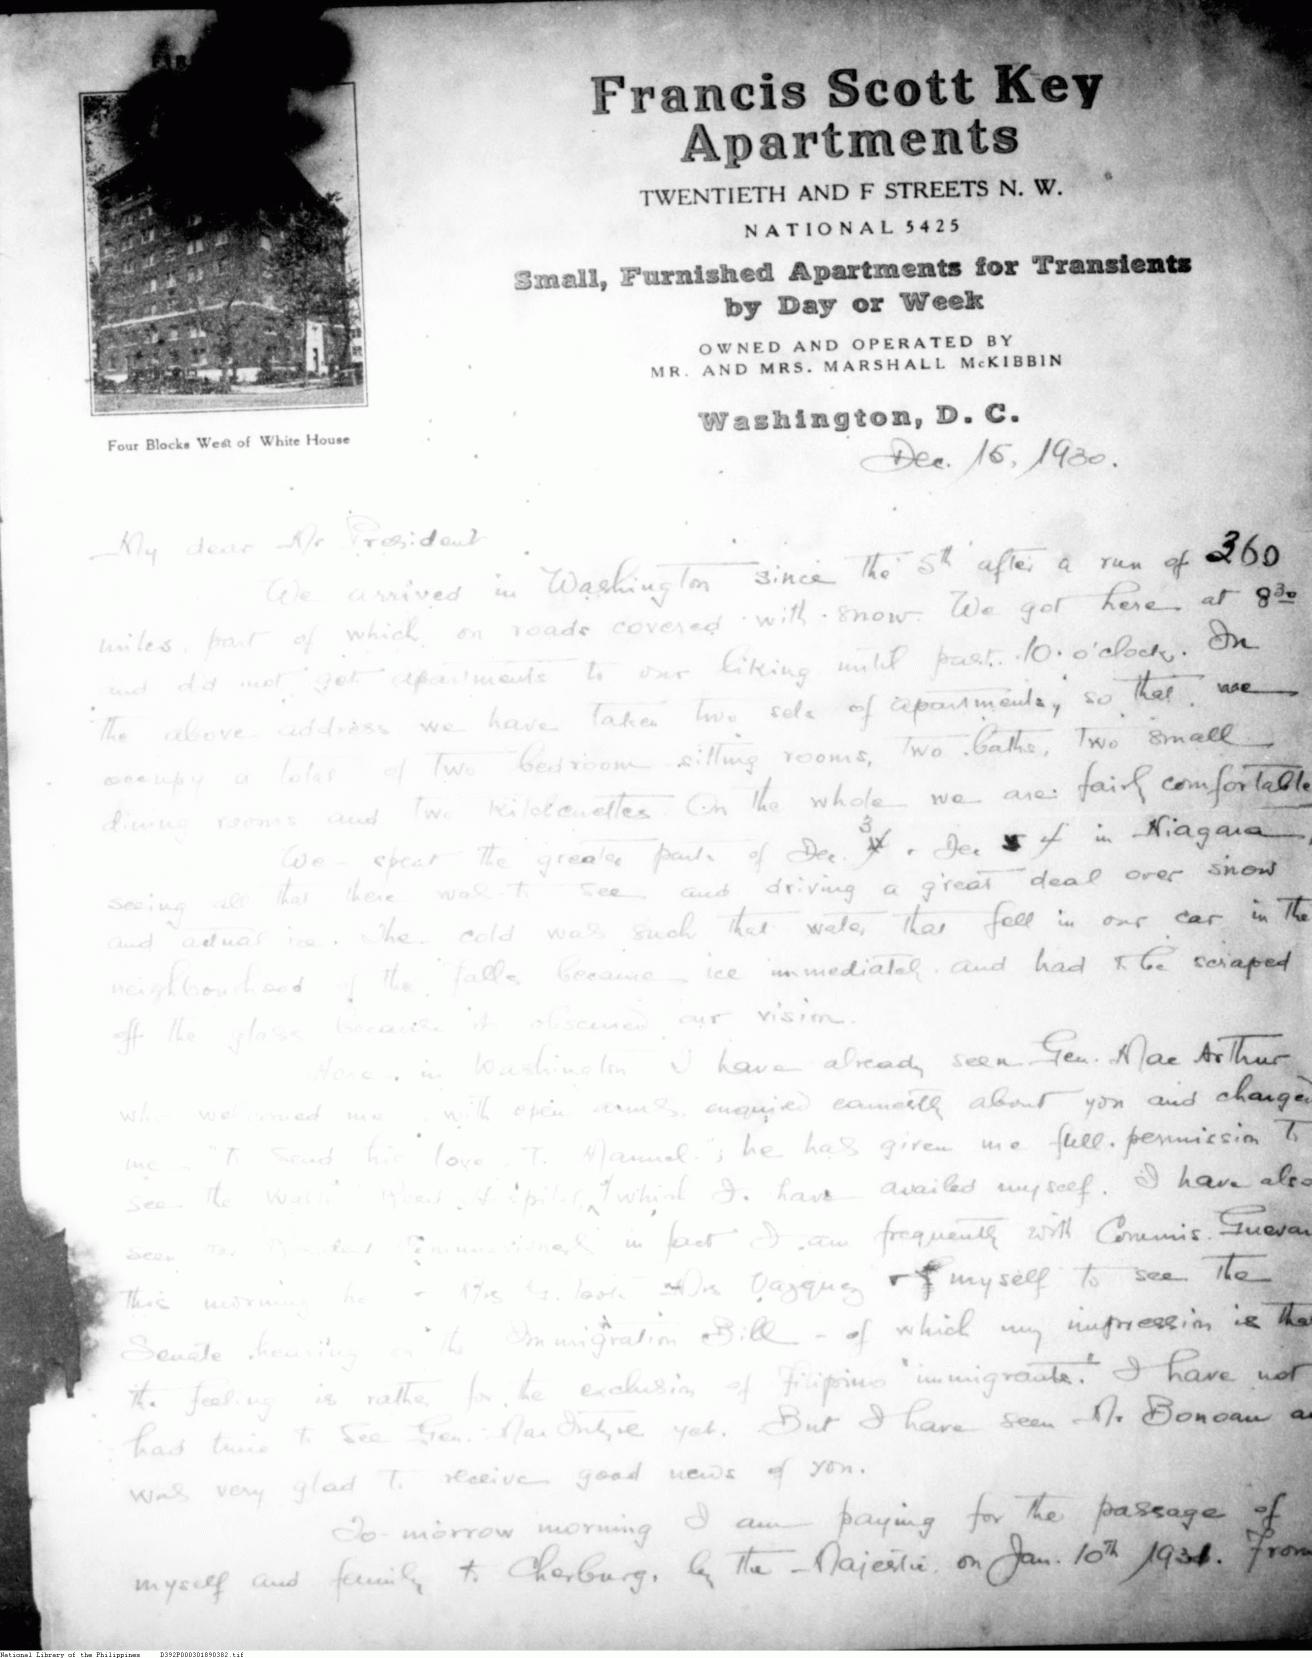 Francis Scott Key
Apartments
TWENTIETH AND F STREETS N. W.
NATIONAL 5425
Small, Furnished Apartments for Transients
by Day or Week
OWNED AND OPERATED BY
MR. AND MRS. MARSHALL McKIBBIN
Washington, D. C.
Four Blocks West of White House
Dec. 15, 1930.
My dear Mr President
We arrived in Washington since the 5th after a run of 360
miles, part of which on roads covered with snow. We got here at 8 30
and did not get apartments to our liking until past 10 o'clock. In
the above address we have taken two sets of apartments, so that we
occupy a total of two bedroom sitting rooms, two baths, two small
dining rooms and two kitchenettes. On the whole we are fairly comfortable
We spent the greater part of Dec. 3 & Dec 4 in Niagara,
seeing all that there was to see and driving a great deal over snow
and actual ice. The cold was such that water that fell in our car in the
neighbourhood of the falls became ice immediately and had to be scraped
off the glass because it obscured our vision.
Here in Washington I have already seen Gen. Mac Arthur
who welcomed me with open arms, enquired earnestly about you and charged
me "to send his love to Manuel"; he has given me full permission to
see the Hospital, which I have availed myself. I have also
seen our Resident Commissioners in fact I am frequently with Commis. Guevar
this morning he & Mrs G. took Mrs Vazquez & myself to see the
Senate hearing on the Immigration Bill - of which my impression is that
the feeling is rather for the exclusion of Filipino "immigrants." I have not
had time to see Gen. MacIntyre yet. But I have seen Mr Bonoan an
was very glad to receive good news of you.
To-morrow morning I am paying for the passage of
myself and family to Cherburg, by the Majestic on Jan. 10th 1931. From
National Library of the Philippines D392P000301890382.tif